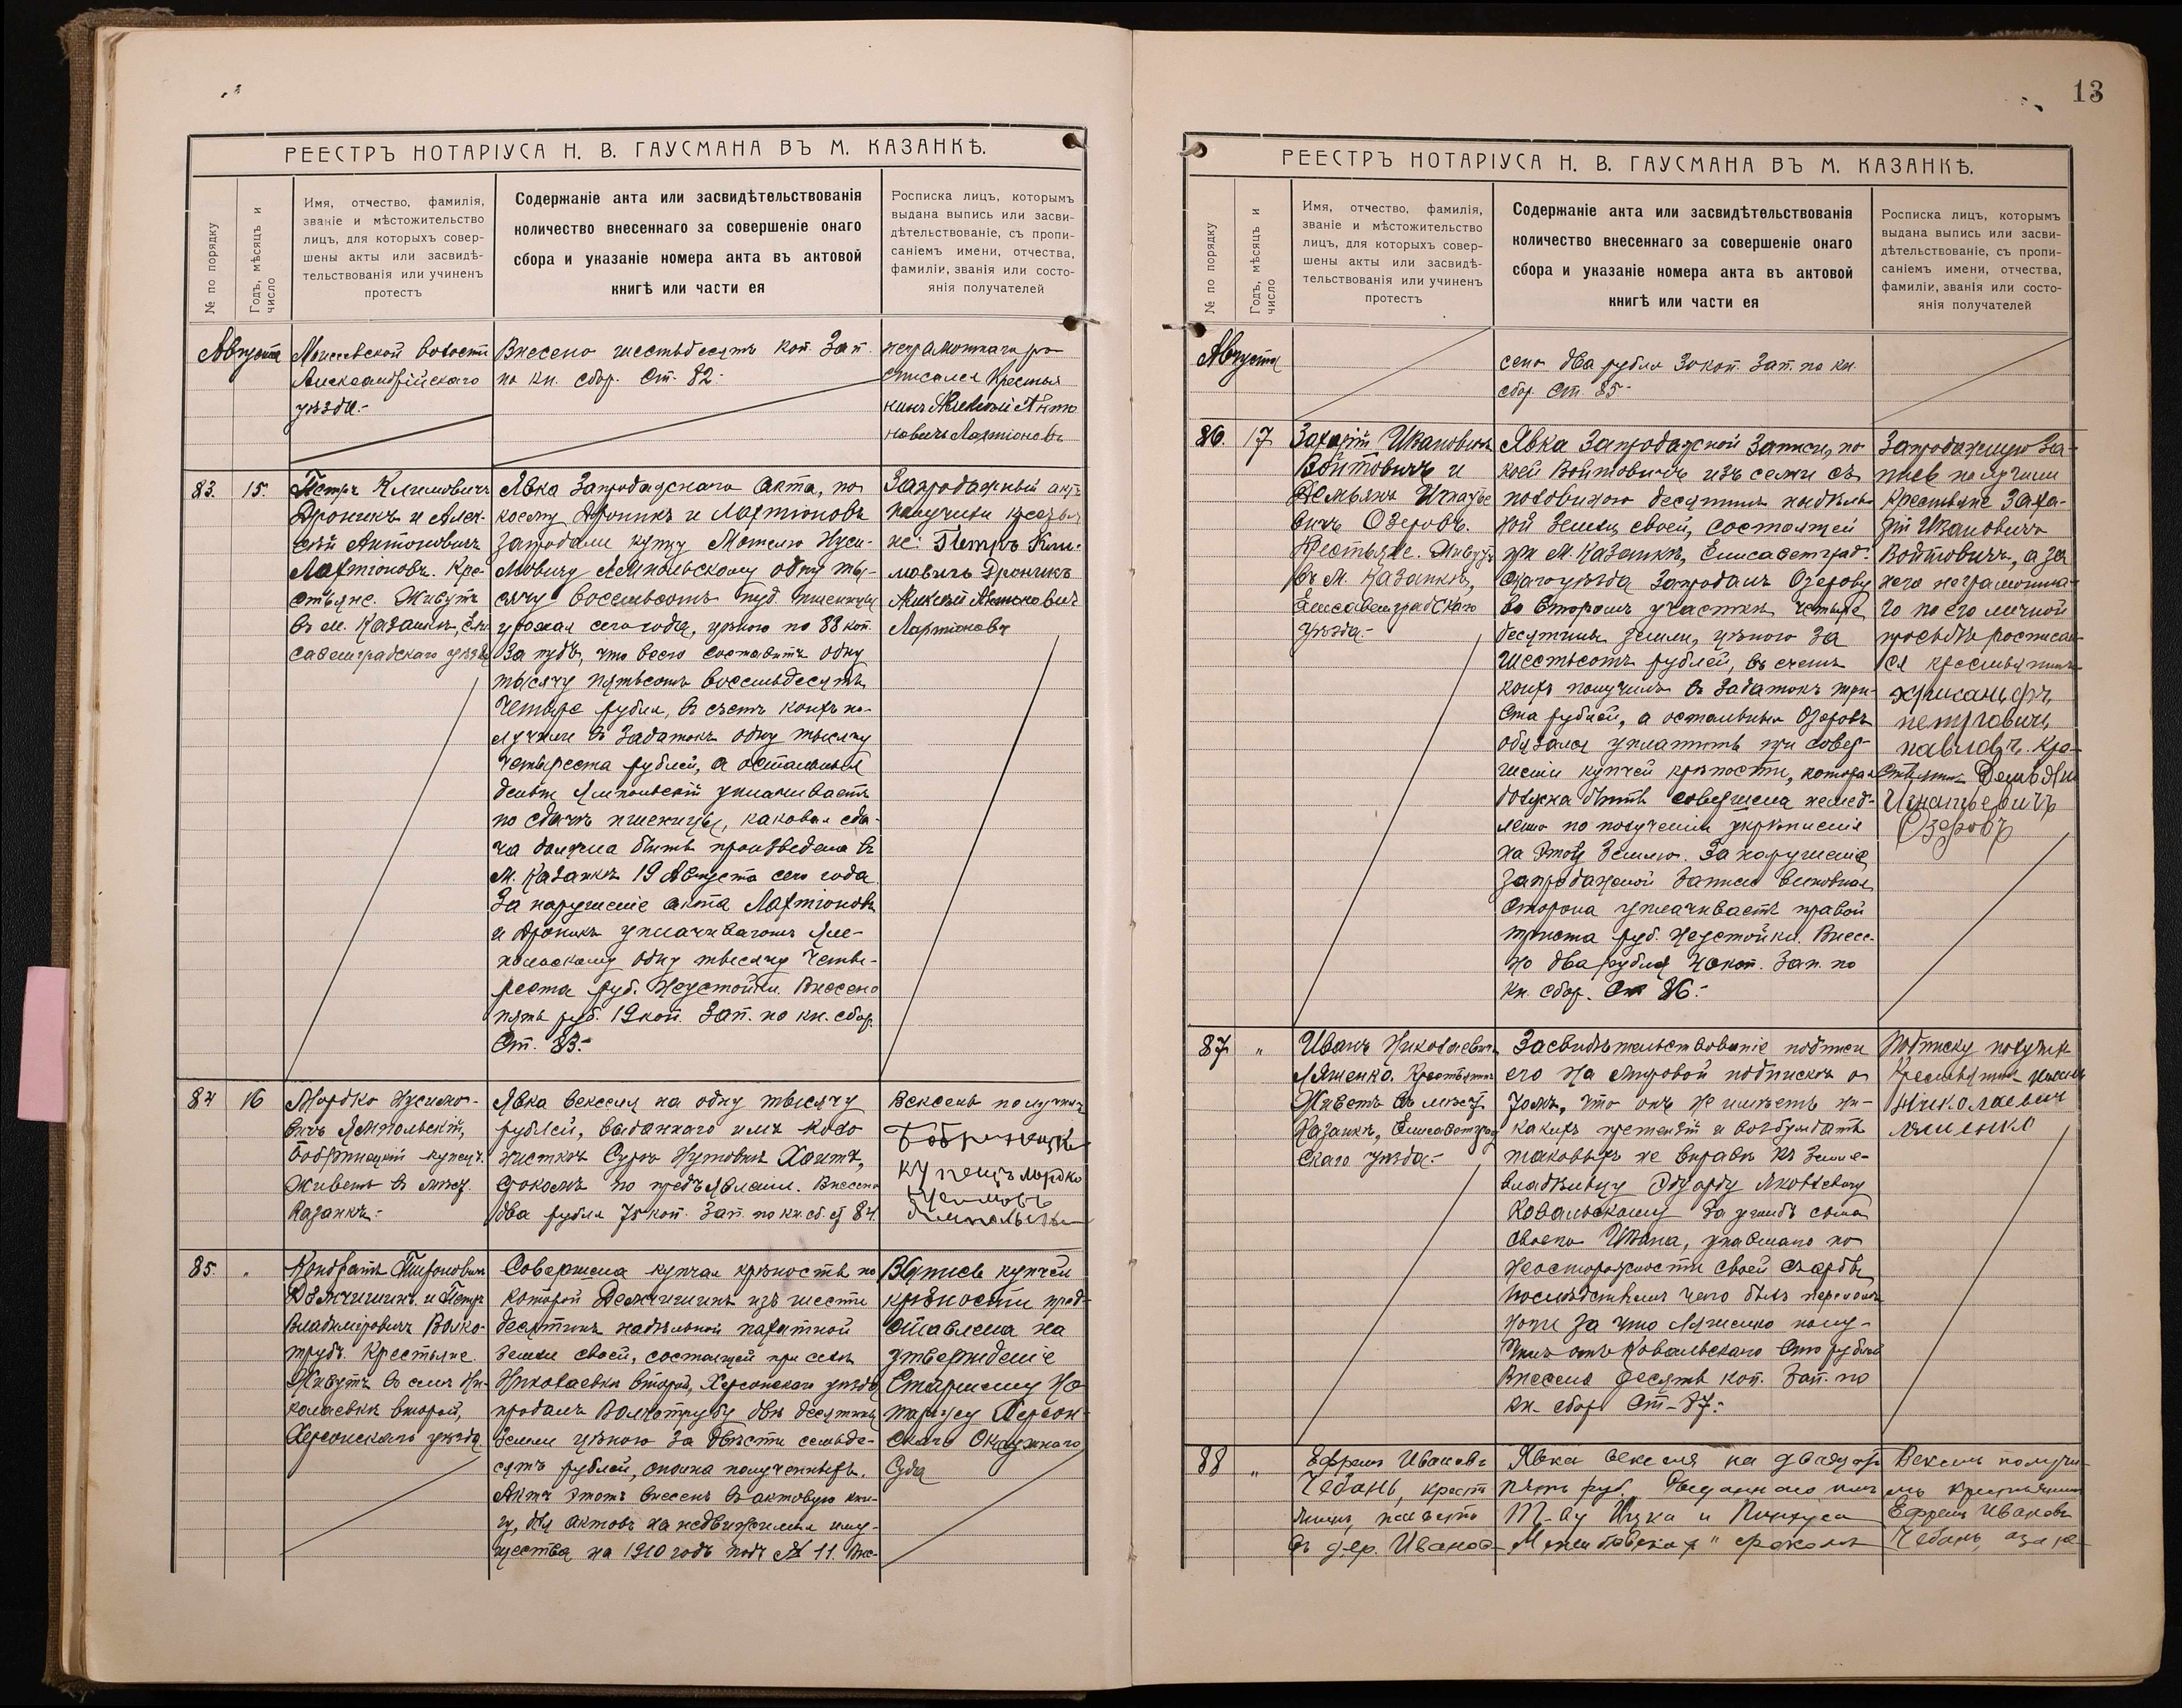 РЕЕСТРЪ НОТАРІУСА Н. В. ГАУСМАНА ВЪ М. КАЗАНКѢ.
№ по порядку
Годъ, мѣсяцъ и
число
Имя, отчество, фамилія,
званіе и мѣстожительство
лицъ, для которыхъ совер-
шены акты или засвидѣ-
тельствованія или учиненъ
протестъ
Содержаніе акта или засвидѣтельствованія
количество внесеннаго за совершеніе онаго
сбора и указаніе номера акта въ актовой
книгѣ или части ея
Росписка лицъ, которымъ
выдана выпись или засви-
дѣтельствованіе, съ пропи-
саніемъ имени, отчества,
фамиліи, званія или состо-
янія получателей
Августа
Моисевской волости
Александрійскаго
уѣзда.-
Внесено шестьдесятъ коп. Зап.
по кн. сбор. Ст. 82.-
неграмотнаго ро
списался Крестья
нинъ Алексѣй Анто
новичъ Ларіоновъ
83.
15.
Петръ Климовичъ
Дроникъ и Алек-
сѣй Антоновичъ
Ларіоновъ. Кре-
стьяне. Живутъ
въ м. Казанкѣ, Ели-
саветградскаго уѣзда
Явка Запродажнаго акта, по
коему Дроникъ и Ларіоновъ
запродали купцу Мошко Нуси-
мовичу Ямпольскому одну ты-
сячу восемьсотъ пуд. пшеницы
урожая сего года, цѣною по 88 коп.
за пудъ, что всего составитъ одну
тысячу пятьсотъ восемьдесятъ
четыре рубля, въ счетъ коихъ по-
лучили въ задатокъ одну тысячу
четыреста рублей, а остальныя
деньги Ямпольскій уплачиваетъ
по сдачѣ пшеницы, каковая сда-
ча должна быть произведена въ
м. Казанкѣ 19 Августа сего года.
За нарушеніе акта Ларіоновъ
и Дроникъ уплачиваютъ Ям-
польскому одну тысячу четы-
реста руб. неустойки. Внесено
пять руб. 19 коп. Зап. по кн. сбор.
Ст. 83.-
Запродажный актъ
получили крестья
не: Петръ Кли-
мовичъ Дроникъ
Алексѣй Антоновичъ
Ларіоновъ
84
16
Мордко Нусимо-
вичъ Ямпольскій,
Бобринецкій купецъ.
Живетъ въ мѣст.
Казанкѣ.-
Явка векселя на одну тысячу
рублей, выданнаго имъ
Сурѣ Нутовнѣ
срокомъ по предъявленіи. Внесено
два рубля 75 коп. Зап. по кн. сб. ст 84.
Вексель получилъ
Бобринецкій
купецъ Мордко
Нусимовъ
Ямпольскій
85.
"
Кондратъ
Демчишинъ и Петръ
Владиміровичъ Волко-
трубъ. Крестьяне.
Живутъ въ селѣ Ни-
колаевкѣ второй,
Херсонскаго уѣзда
Совершена купчая крѣпость по
которой Демчишинъ изъ шести
десятинъ надѣльной пахатной
земли своей, состоящей при селѣ
Николаевкѣ второй, Херсонскаго уѣзда
продалъ Волкотрубу двѣ десятины
земли цѣною за двѣсти семьде-
сятъ рублей, сполна полученныхъ.
Актъ этотъ внесенъ въ актовую кни-
гу, для актовъ на недвижимыя иму-
щества на 1910 годъ подъ № 11. Вне-
Выпись купчей
крѣпости пред-
ставлена на
утвержденіе
Старшему Но-
таріусу Херсон-
скаго Окружнаго
Суда
13
РЕЕСТРЪ НОТАРІУСА Н. В. ГАУСМАНА ВЪ М. КАЗАНКѢ.
№ по порядку
Годъ, мѣсяцъ и
число
Имя, отчество, фамилія,
званіе и мѣстожительство
лицъ, для которыхъ совер-
шены акты или засвидѣ-
тельствованія или учиненъ
протестъ
Содержаніе акта или засвидѣтельствованія
количество внесеннаго за совершеніе онаго
сбора и указаніе номера акта въ актовой
книгѣ или части ея
Росписка лицъ, которымъ
выдана выпись или засви-
дѣтельствованіе, съ пропи-
саніемъ имени, отчества,
фамиліи, званія или состо-
янія получателей
Августа
сено два рубля 30 коп. Зап. по кн.
сбор. Ст. 85.-
86.
17
Захарій Ивановичъ
Войтовичъ и
Демьянъ Игнатье
вичъ Озеровъ.
Крестьяне. Живутъ
въ м. Казанкѣ,
Елисаветградскаго
уѣзда.-
Явка Запродажной Записи, по
коей Войтовичъ изъ семи съ
половиною десятинъ надѣль-
ной земли, своей, состоящей
при м. Казанкѣ, Елисаветград-
скаго уѣзда запродалъ Озерову
во второмъ участкѣ четыре
десятины земли, цѣною за
шестьсотъ рублей, въ счетъ
коихъ получилъ въ задатокъ три-
ста рублей, а остальныя Озеровъ
обязался уплатить при совер-
шеніи купчей крѣпости, которая
должна быть совершена немед-
ленно по полученіи укрѣпленія
на эту землю. За нарушеніе
запродажной записи виновная
сторона уплачиваетъ правой
триста руб. неустойки. Внесе-
но два рубля 40 коп. Зап. по
кн. сбор. Ст 86.-
Запродажную За-
пись получили
крестьяне Заха-
рій Ивановичъ
Войтовичъ, а за
него неграмотна-
го по его личной
просьбѣ росписал-
ся крестьянинъ
петровичъ
павловъ. Кре-
стьянинъ Демьянъ
Игнатьевичъ
Озеровъ
87
"
Иванъ Николаевичъ
Ляшенко. Крестьянинъ
Живетъ въ мѣст.
Казанкѣ, Елисаветград
скаго уѣзда.-
Засвидѣтельствованіе подписи
его на мировой подпискѣ о
томъ, что онъ не имѣетъ ни-
какихъ претензій и возбуждать
таковыхъ не вправѣ къ земле-
владѣльцу Эдуарду Яковлевичу
Ковальскому за ушибъ сына
своего Ивана, упавшаго по
неосторожности своей съ арбы
послѣдствіемъ чего былъ переломъ
ноги за что Ляшенко полу-
чилъ отъ Ковальскаго сто рублей
Внесено десять коп. Зап. по
кн. сбор. Ст- 87.-
Подписку получилъ
Крестьянинъ Иванъ
Николаевичъ
Ляшенко
88
"
Ефремъ Ивановъ
Чебанъ, крест
янинъ,
въ дер. Иванов-
Явка векселя на двадцать
пять руб. выданнаго имъ
Т-ву Ицка и Пинхуса
срокомъ
Вексель получи-
лъ крестьянинъ
Ефремъ Ивановъ
Чебанъ, а за не-